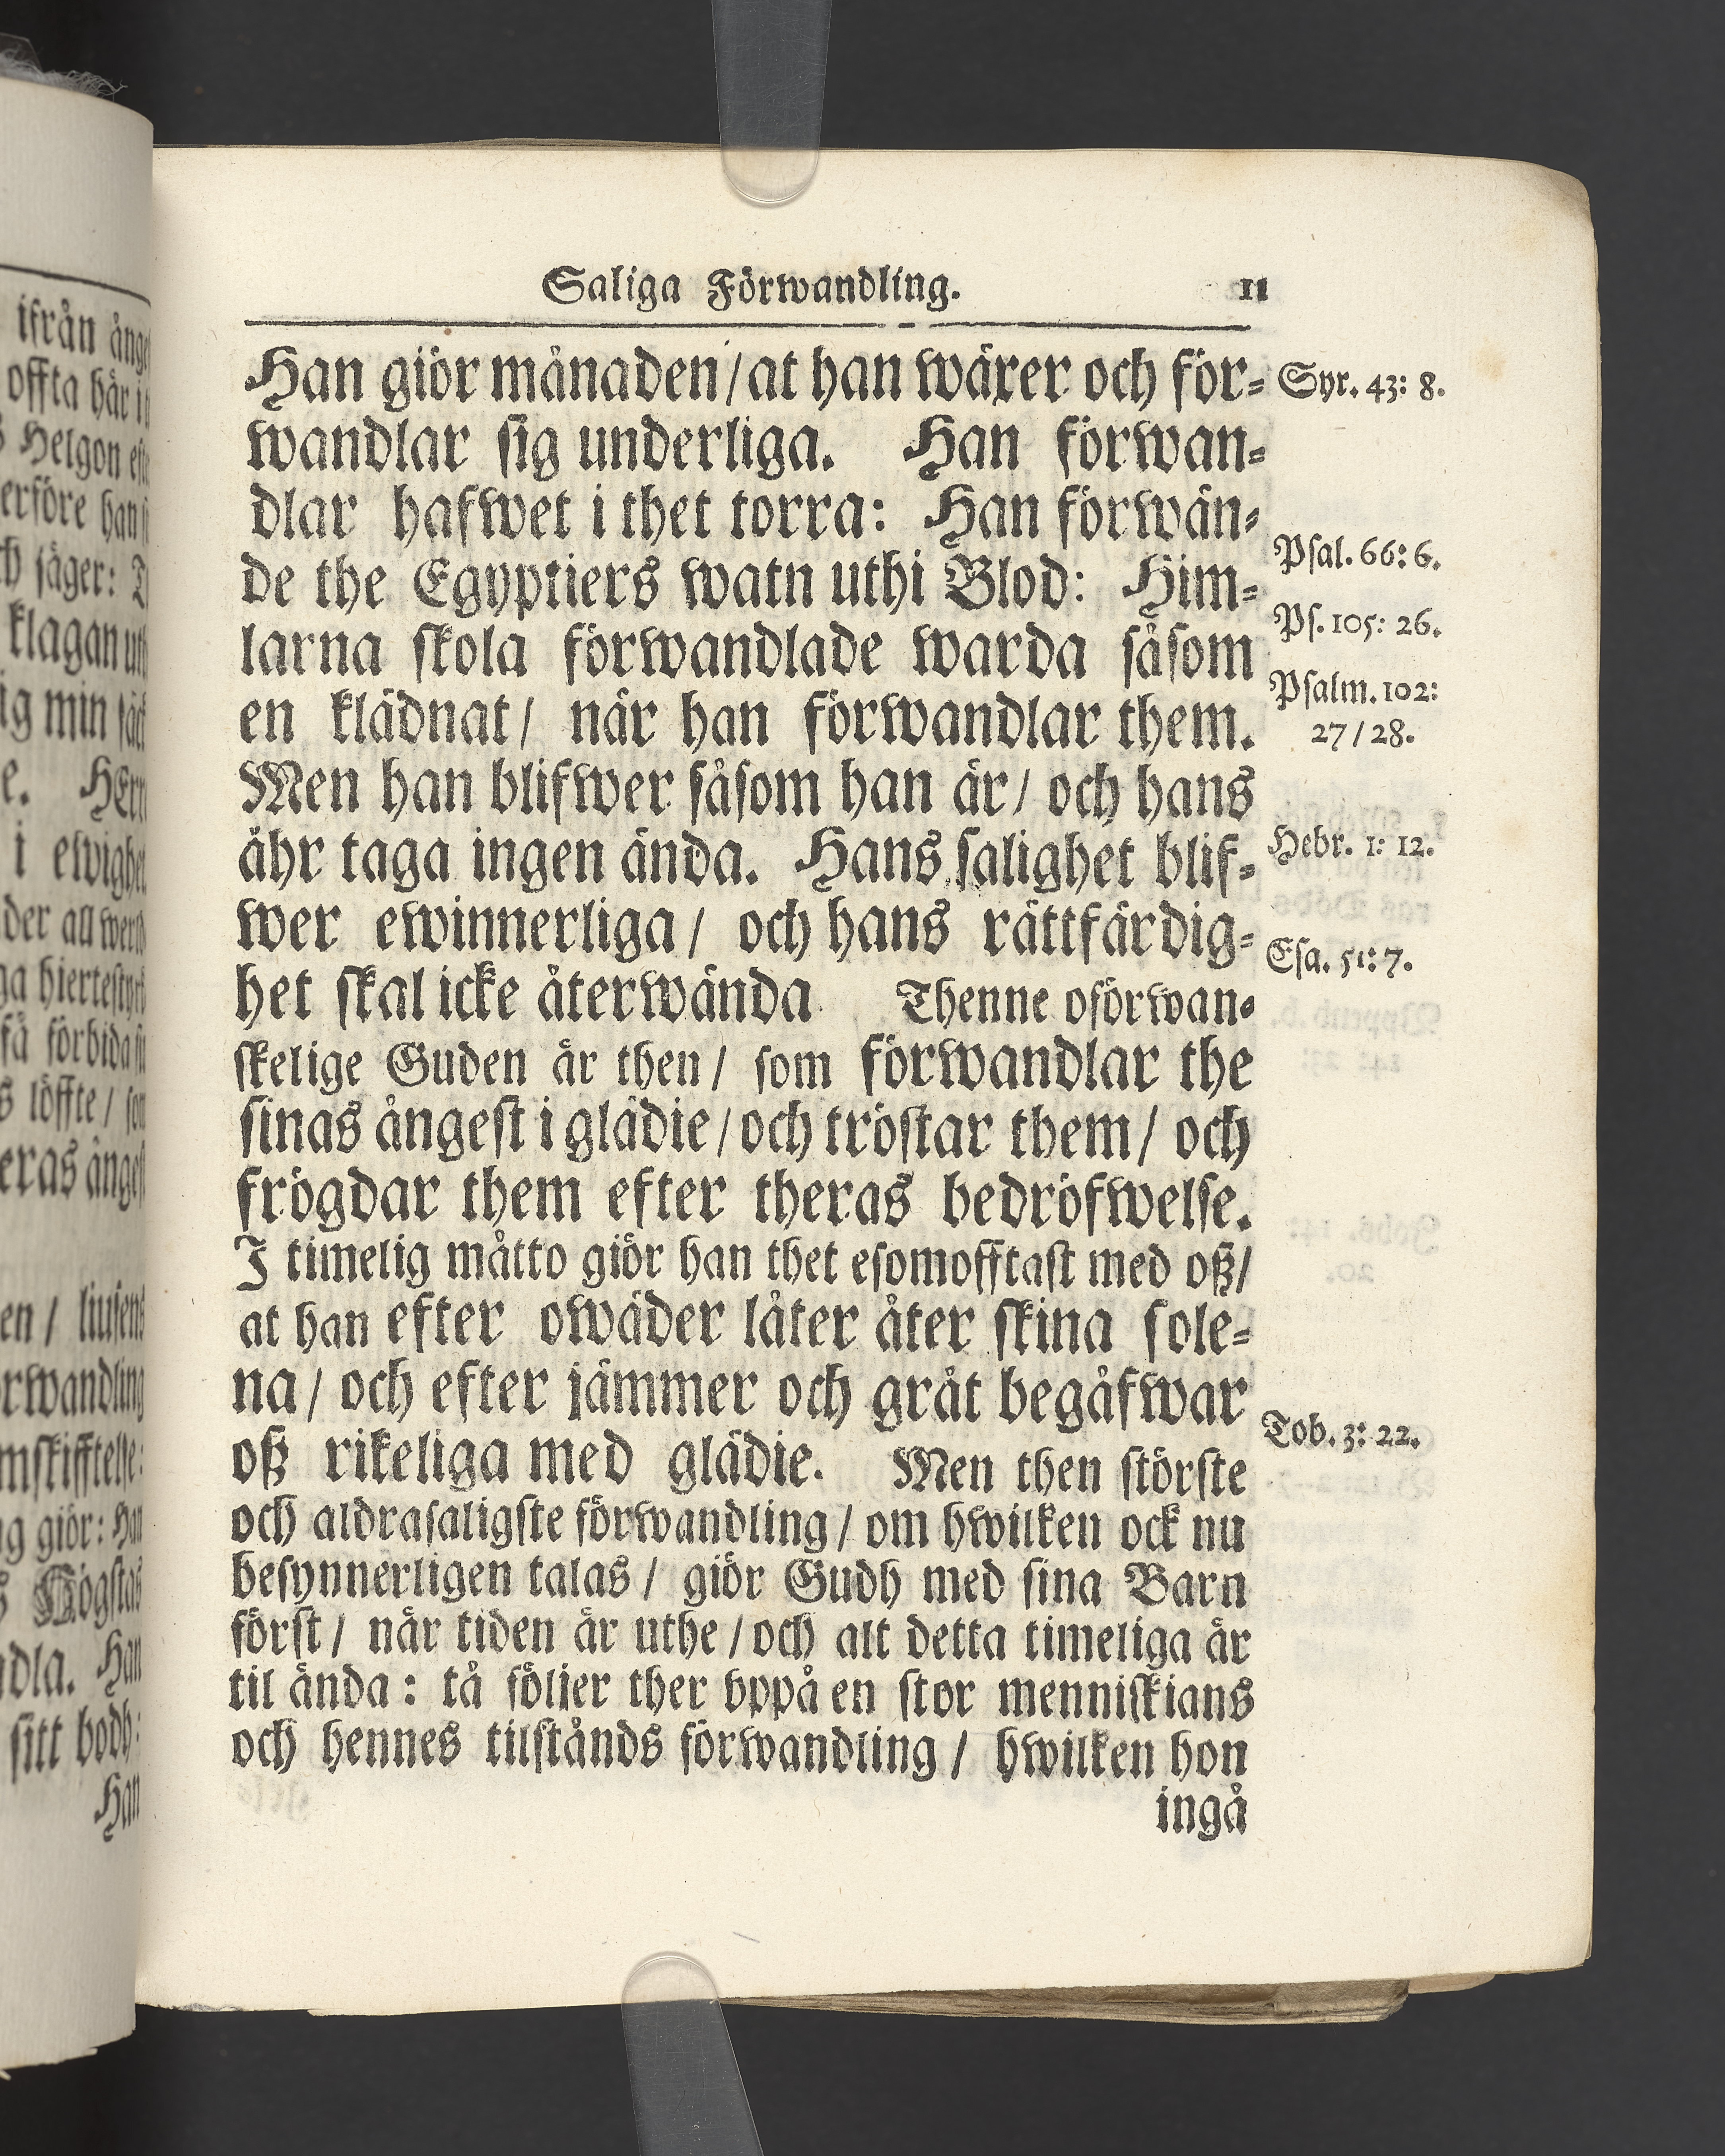 Saliga Förwandling. 11
Han giör månaden/at han wäxer och för-
wandlar sig underliga. Han förwan-
dlar hafwet i thet torra: Han förwän-
de the Egyptiers watn uthi Blod: Him-
larna skola förwandlade warda såsom
en klädnat/ när han förwandlar them.
Men han blifwer såsom han är/ och hans
åhr taga ingen ända. Hans salighet blif-
wer ewinnerliga/ och hans rättfärdig-
het skal icke återwända Thenne oförwan-
skelige Guden är then/ som förwandlar the
sinas ångest i glädie/och tröstar them/ och
frögdar them efter theras bedröfwelse.
I timelig måtto giör han thet esomofftast med oß/
at han efter owäder låter åter skina sole-
na/ och efter jämmer och gråt begåfwar
oß rikeliga med glädie. Men then störste
och aldrasaligste förwandling/ om hwilken ock nu
besynnerligen talas/ giör Gudh med sina Barn
först/ när tiden är uthe/och alt detta timeliga är
til ända: tå fölier ther vppå en stor menniskians
och hennes tilstånds förwandling/ hwilken hon
ingå
Syr. 43: 8.
Psal. 66: 6.
Ps. 105: 26.
Psalm. 102:
27/28.
Hebr. 1: 12.
Esa. 51: 7.
Tob. 3: 22.
ifrån ång
offta här i
Helgon
säger:
klagan
ig min
e. HErr
i ewighet
förbida
löffte/ som
eras ångest
en/
rwandling
giör: Han
Högstas
dla. Han
sitt bodh:
Han